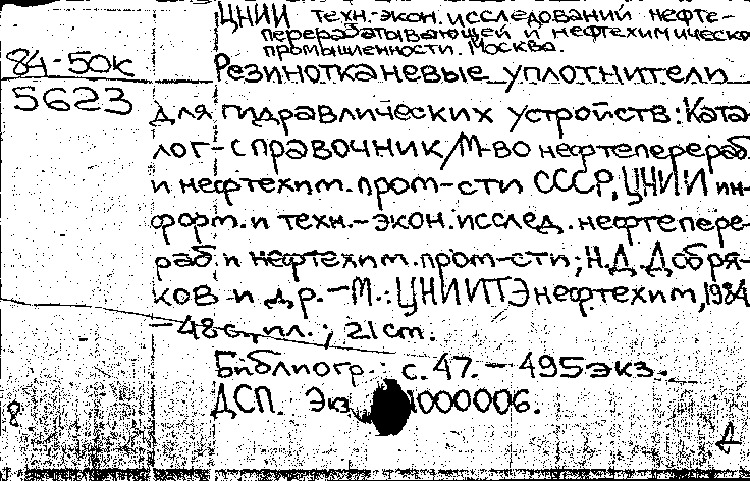 ЦНИИ техн.-экон. исследований нефте-
перерабатывающей и нефтехимическо
промышленности. Москва.
84-50к
Резинотканевые уплотнители
5623
для гидравлических устройств: Ката-
лог-справочник/М-во нефтеперераб.
и нефтехим. пром-сти СССР, ЦНИИ ин-
форм. и техн.-экон. исслед. нефтепере-
раб. и нефтехим. пром-сти; Н.Д. Добря-
ков и др. - М.: ЦНИИТЭнефтехим, 1984
- 48с., ил.; 21см.
Библиогр.: с. 47. - 495экз.
ДСП. Экз 1000006.
8.
Д